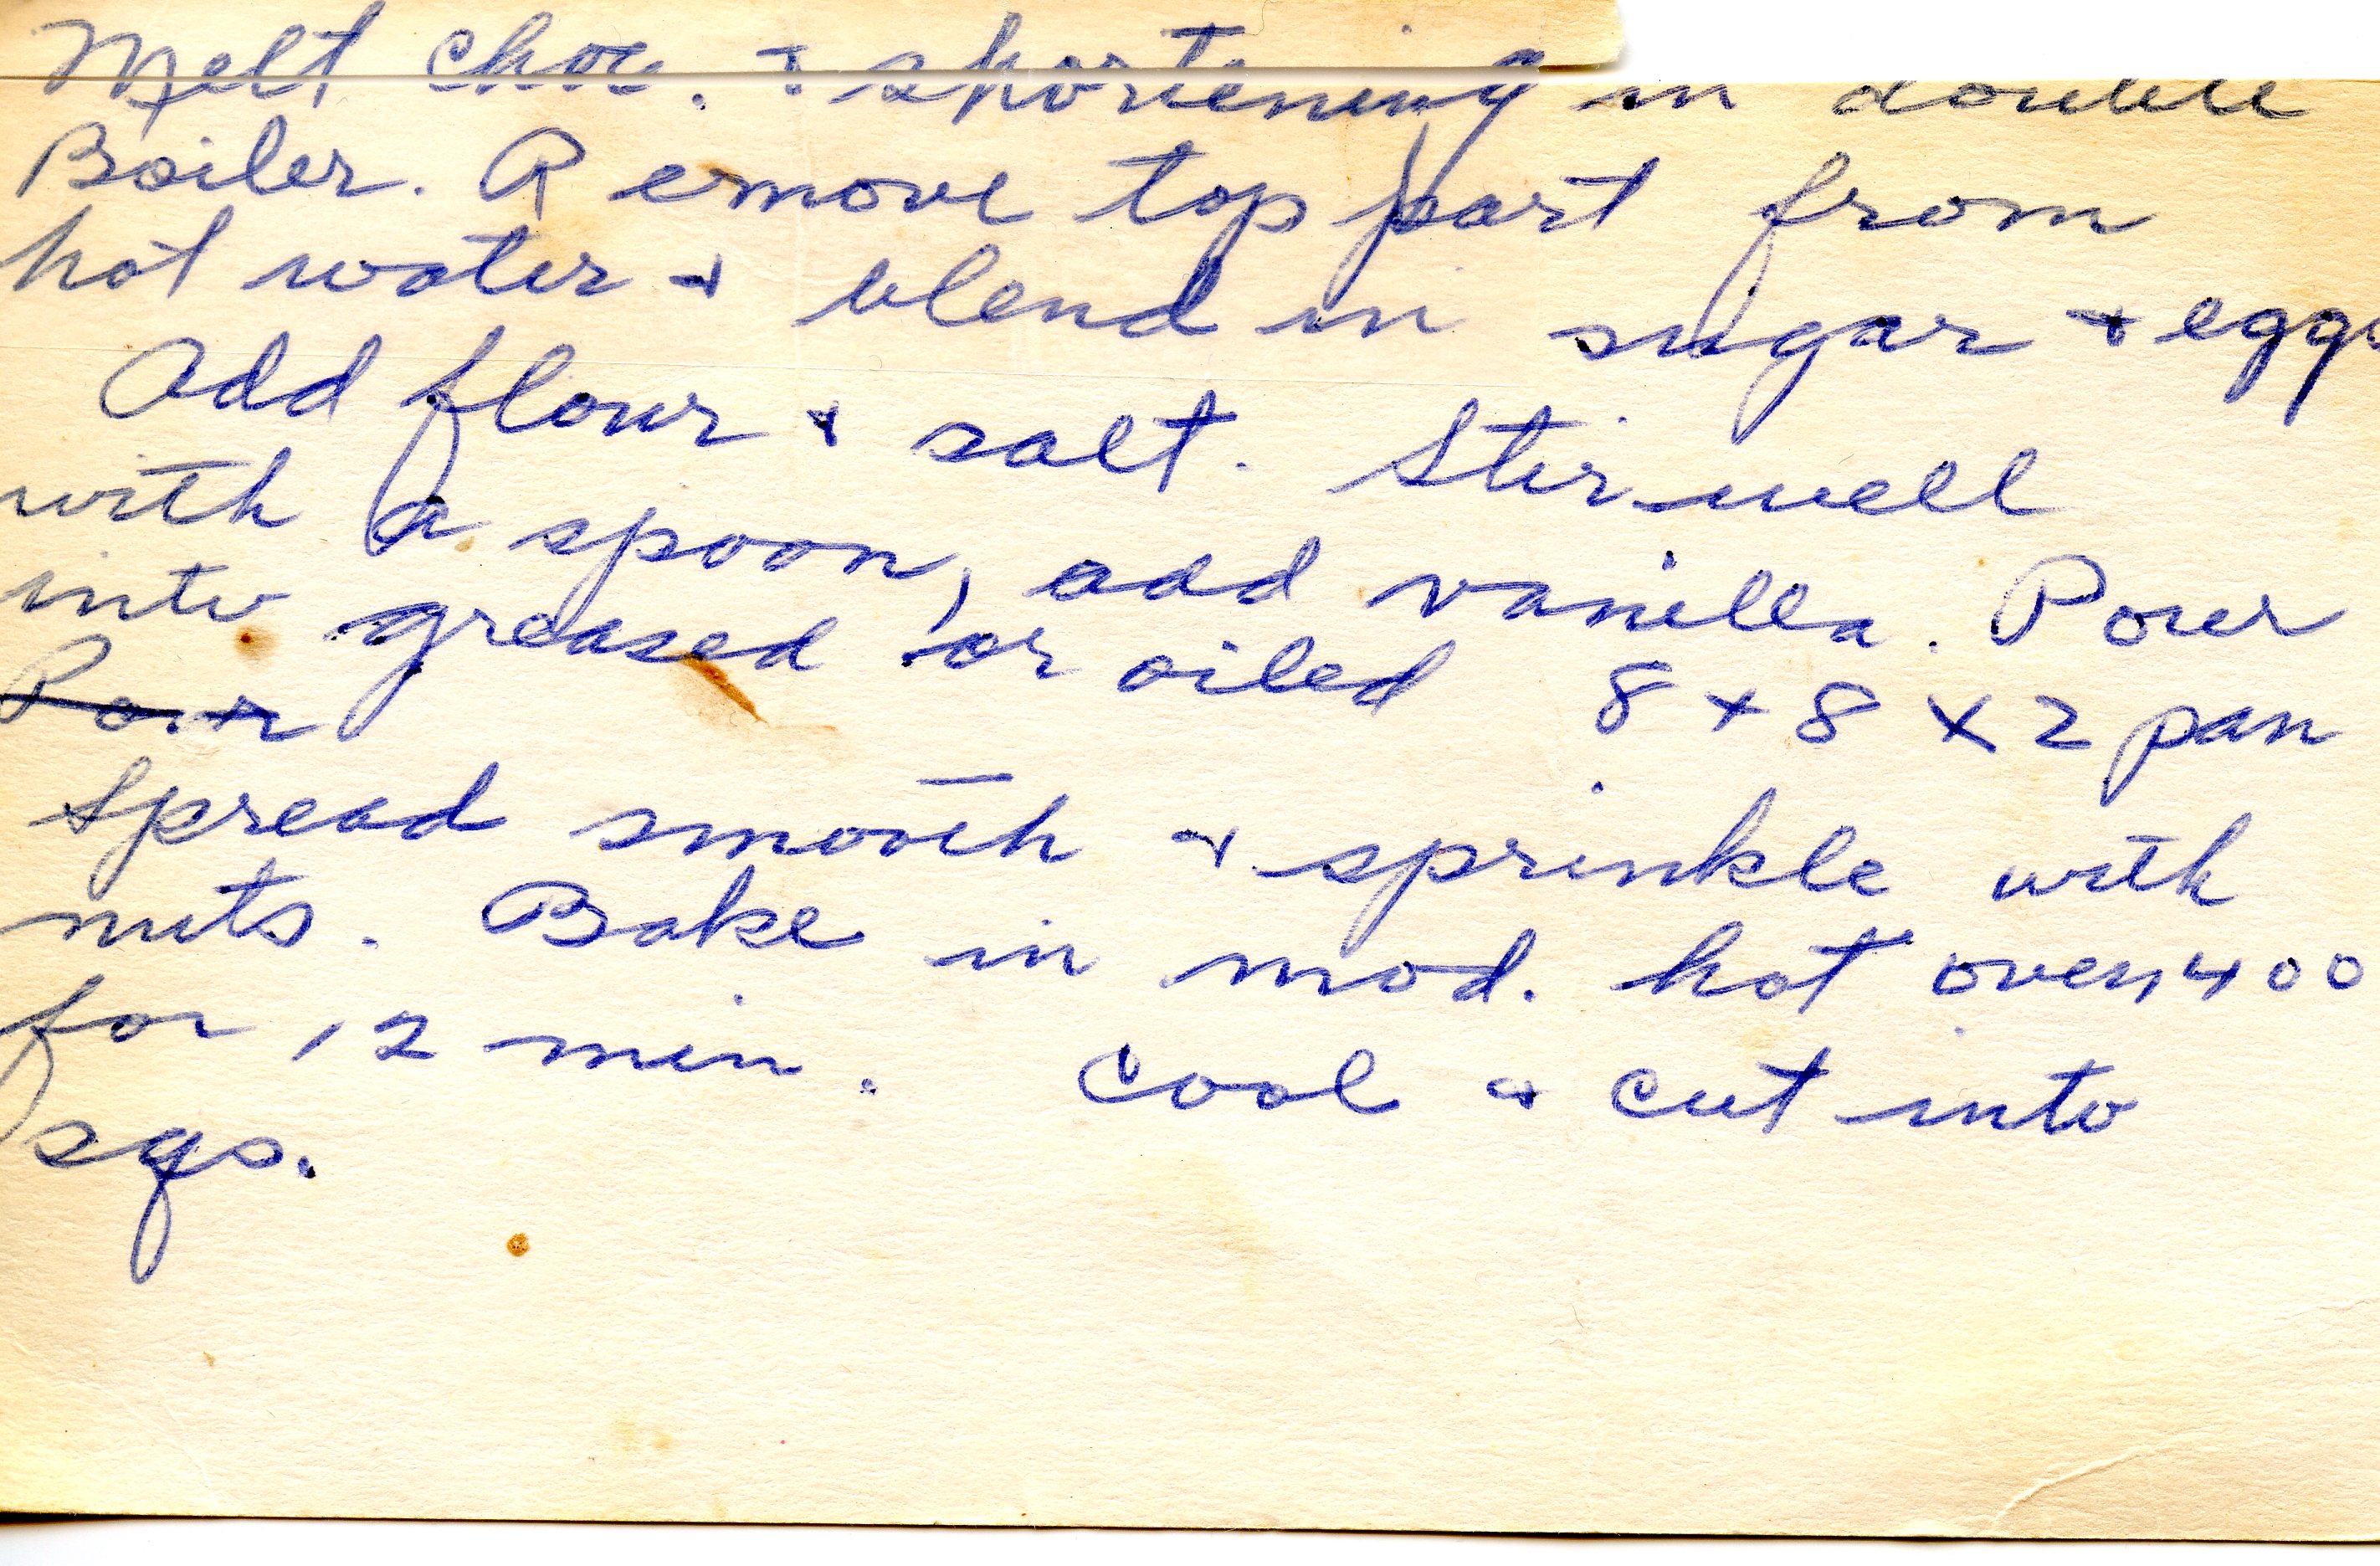 Melt choc. & shortening in double
Boiler. Remove top part from
hot water & blend in sugar & eggs
Add flour & salt. Stir well
with a spoon, add vanilla. Pour
into greased or oiled 8 x 8 x 2 pan
Pour
Spread smooth & sprinkle with
nuts. Bake in mod. hot oven 400
for 12 min. Cool & cut into
sqs.